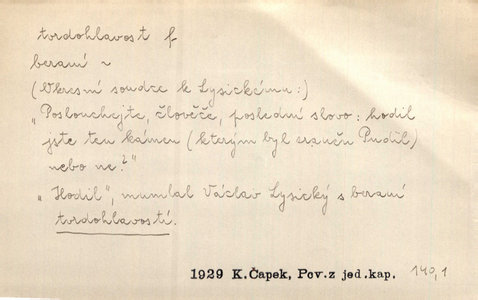 tvrdohlavost f
beraní ~
(Okresní soudce k Lysickému:)
„Poslouchejte, člověče, poslední slovo: hodil
jste ten kámen (kterým byl zraněn Pudil)
nebo ne?"
„Hodil", mumlal Václav Lysický s beraní
tvrdohlavostí.
1929 K.Čapek, Pov.z jed.kap. 140,1